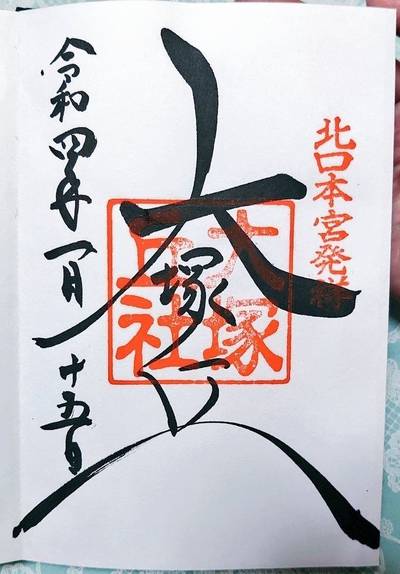 北口本宮発祥
大塚丘
大塚
丘社
令和四年一月十五日